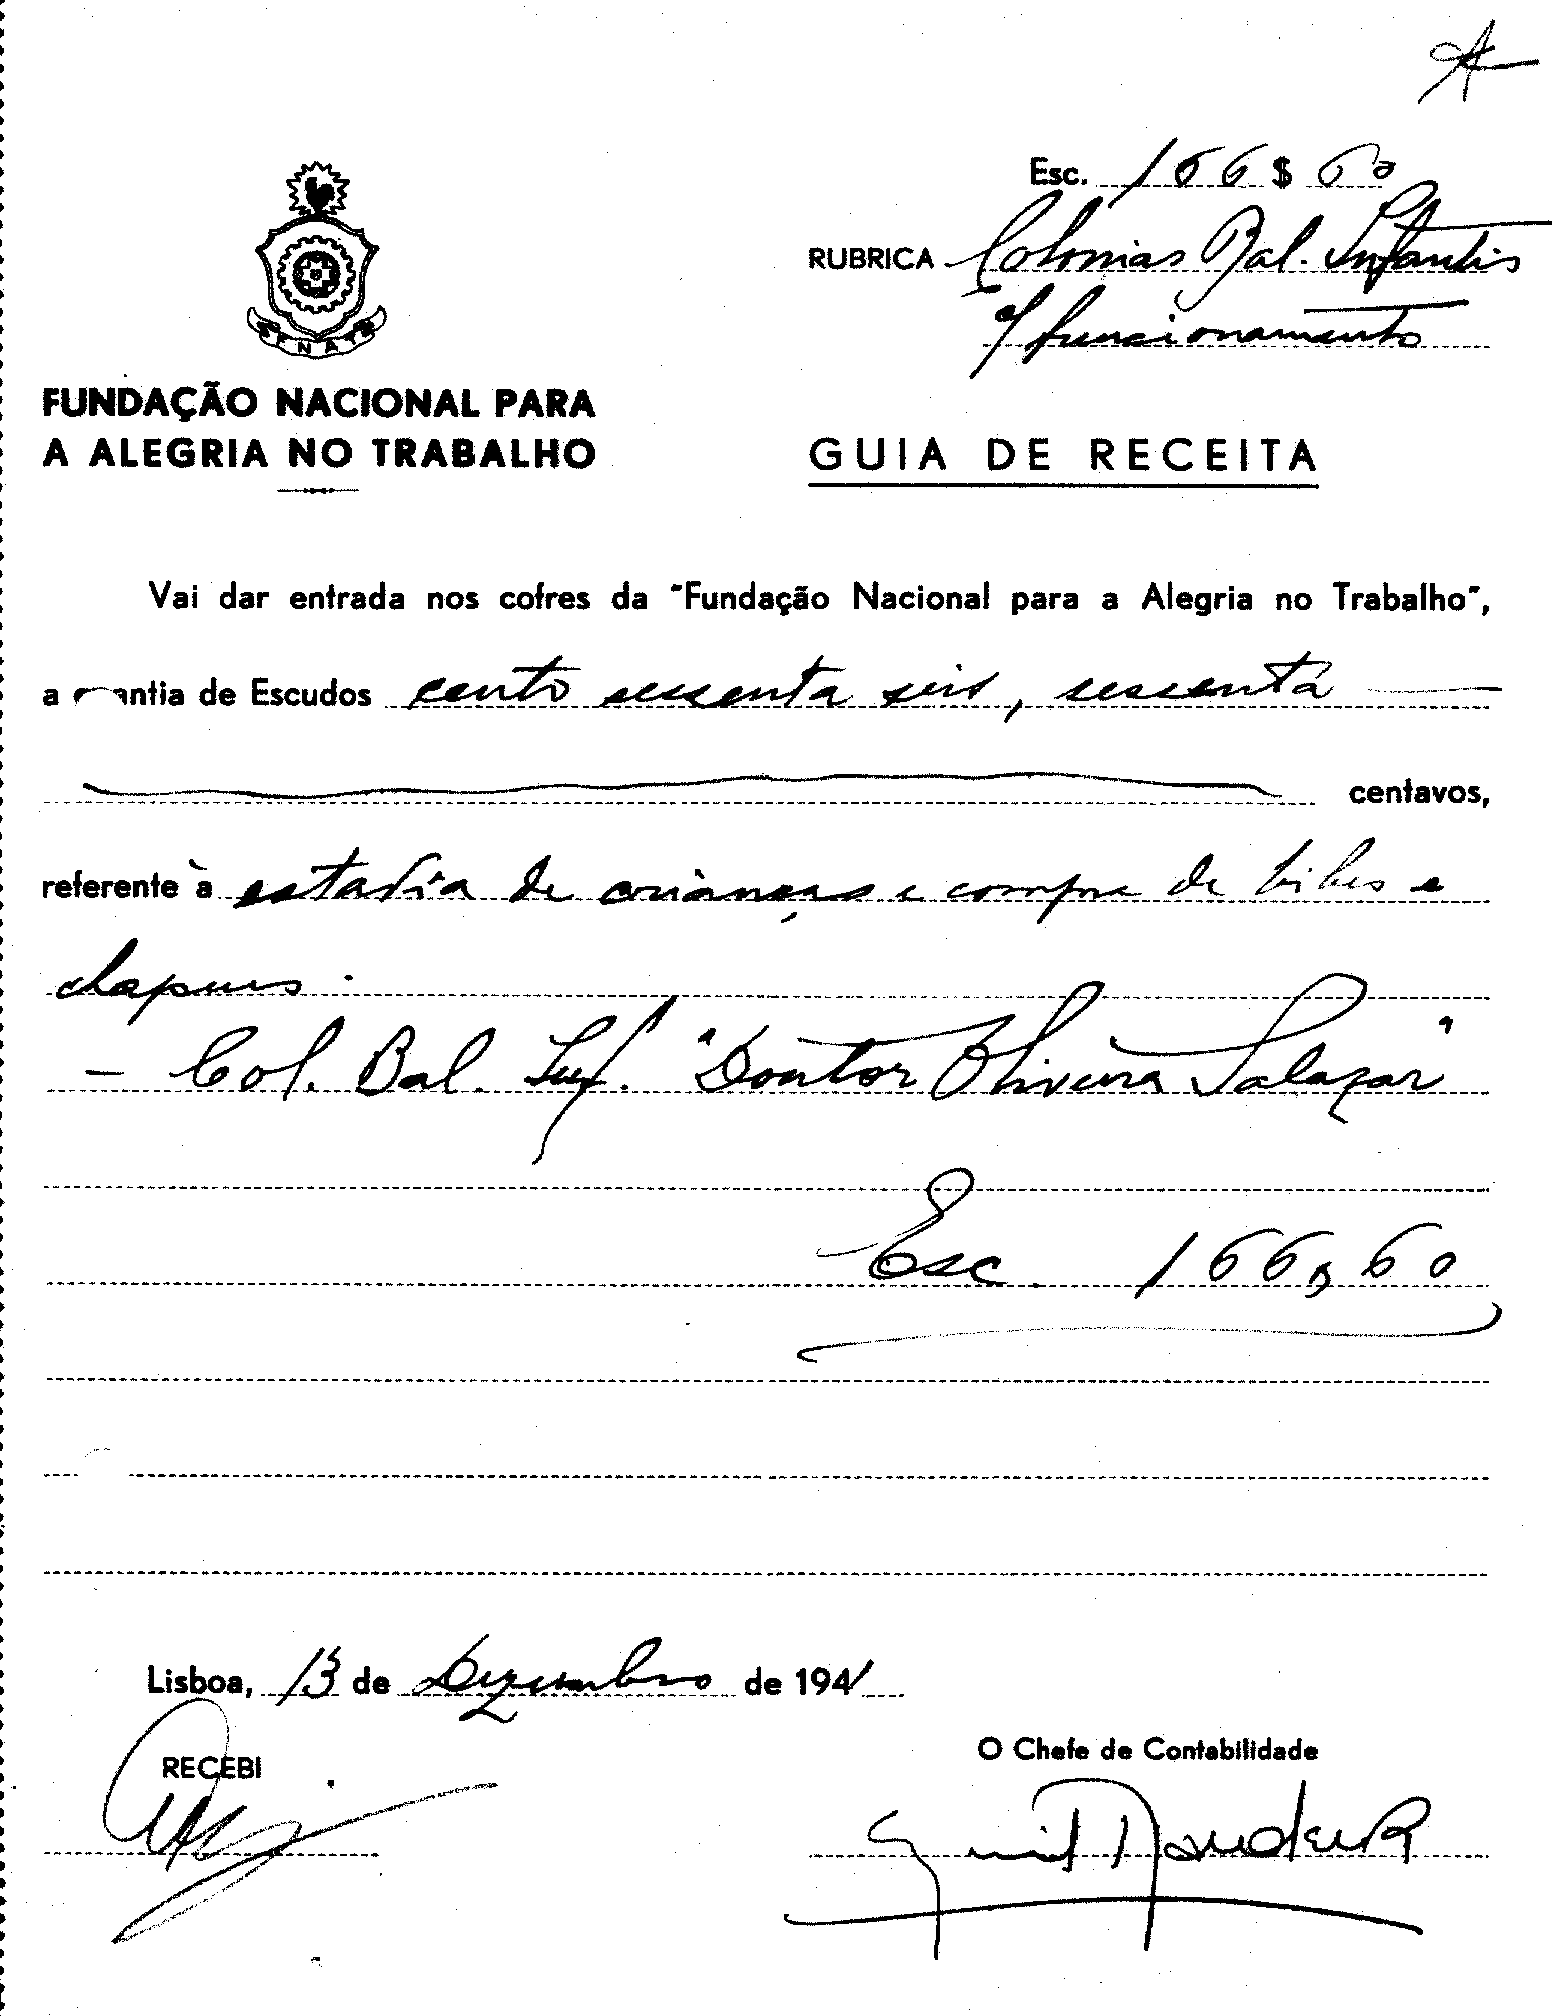 Esc. 166 $ 60
RUBRICA Colonias Bal. Infantis
c/ funcionamento
FENAT
FUNDAÇÃO NACIONAL PARA
A ALEGRIA NO TRABALHO
GUIA DE RECEITA
Vai dar entrada nos cofres da "Fundação Nacional para a Alegria no Trabalho",
a quantia de Escudos cento sessenta seis, sessenta
centavos,
referente à estadia de crianças e compra de bibes e
chapeus.
- Col. Bal. Inf. "Doutor Oliveira Salazar"
Esc. 166$60
Lisboa, 13 de Dezembro de 1941
RECEBI
O Chefe de Contabilidade